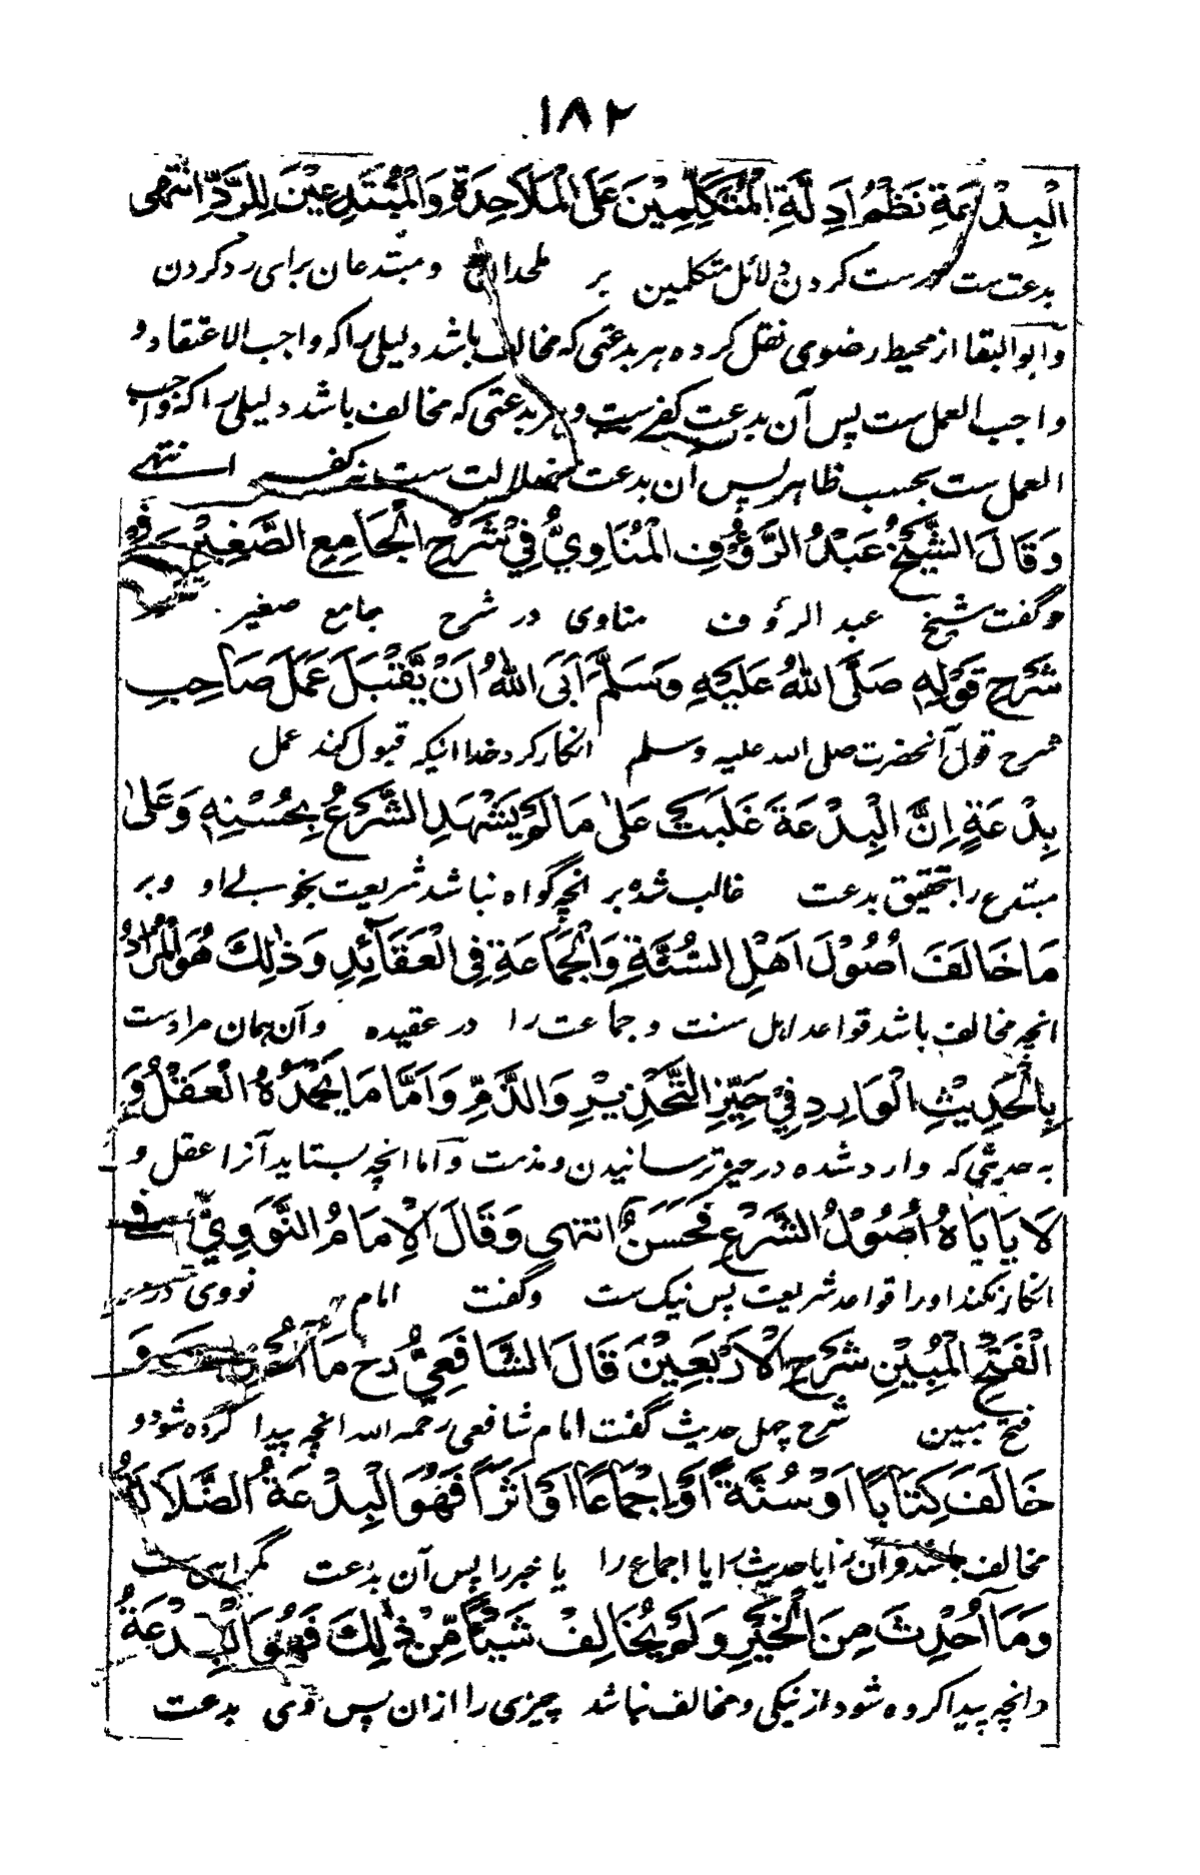 ١٨٢
الْبِدْعَةِ نَظْمُ اَدِلَّةِ الْمُتَكَلِّمِيْنَ عَلَى الْمَلَاحِدَةِ وَالْمُبْتَدِعِيْنَ لِلرَّدِّ انتهى
بدعت ست درست کردن دلائل متکلمین بر ملحدان و مبتدعان برای رد کردن
و ابو البقا از محیط رضوی نقل کرده هر بدعتی که مخالف باشد دلیلی را که واجب الاعتقاد و
واجب العمل ست پس آن بدعت کفرست و هر بدعتی که مخالف باشد دلیلی را که واجب
العمل ست بحسب ظاهر پس آن بدعت ضلالت ست نه کفر انتهے
وَقَالَ الشَّيْخُ عَبْدُ الرَّؤُفِ الْمُنَاوِيُّ فِيْ شَرْحِ الْجَامِعِ الصَّغِيْرِ فِيْ
و گفت شیخ عبد الرؤف مناوی در شرح جامع صغیر
شَرْحِ قَوْلِهِ صَلَّى اللهُ عَلَيْهِ وَسَلَّمَ اَبَى اللهُ اَنْ يَّقْبَلَ عَمَلَ صَاحِبِ
شرح قول آنحضرت صلی الله علیه وسلم انکار کرد خدا اینکه قبول کند عمل
بِدْعَةٍ اِنَّ الْبِدْعَةَ غَلَبَتْ عَلٰى مَا لَمْ يَشْهَدِ الشَّرْعُ بِحُسْنِهٖ وَعَلٰى
مبتدع را بتحقیق بدعت غالب شده بر انچه گواه نباشد شریعت بخوبے او و بر
مَا خَالَفَ اُصُوْلَ اَهْلِ السُّنَّةِ وَالْجَمَاعَةِ فِى الْعَقَائِدِ وَذٰلِكَ هُوَ الْمُرَادُ
انچه مخالف باشد قواعد اهل سنت و جماعت را در عقیده و آن همان مرادست
بِالْحَدِيْثِ الْوَارِدِ فِيْ حَيِّزِ التَّحْذِيْرِ وَالذَّمِّ وَاَمَّا مَا يَحْمَدُهُ الْعَقْلُ وَ
به حدیثی که وارد شده در حیز ترسانیدن و مذمت و اما انچه بستاید آنرا عقل و
لَا يَابَاهُ اُصُوْلُ الشَّرْعِ فَحَسَنٌ انتهى وَقَالَ الْاِمَامُ النَّوَوِيُّ فِے
انکار نکند او را قواعد شریعت پس نیک ست و گفت امام نووی در
الْفَتْحِ الْمُبِيْنِ شَرْحِ الْاَرْبَعِيْنَ قَالَ الشَّافَعِيُّ رح مَا اُحْدِثَ وَ
فتح مبین شرح چهل حدیث گفت امام شافعی رحمه الله انچه پیدا کرده شود و
خَالَفَ كِتَابًا اَوْ سُنَّةً اَوْ اِجْمَاعًا اَوْ اَثَرًا فَهُوَ الْبِدْعَةُ الضَّلَالَةُ
مخالف باشد قرآن را یا حدیث را یا اجماع را یا خبر را پس آن بدعت گمراهی ست
وَمَا اُحْدِثَ مِنَ الْخَيْرِ وَلَمْ يُخَالِفْ شَيْئًا مِّنْ ذٰلِكَ فَهُوَ الْبِدْعَةُ
و انچه پیدا کرده شود از نیکی و مخالف نباشد چیزی را ازان پس وی بدعت